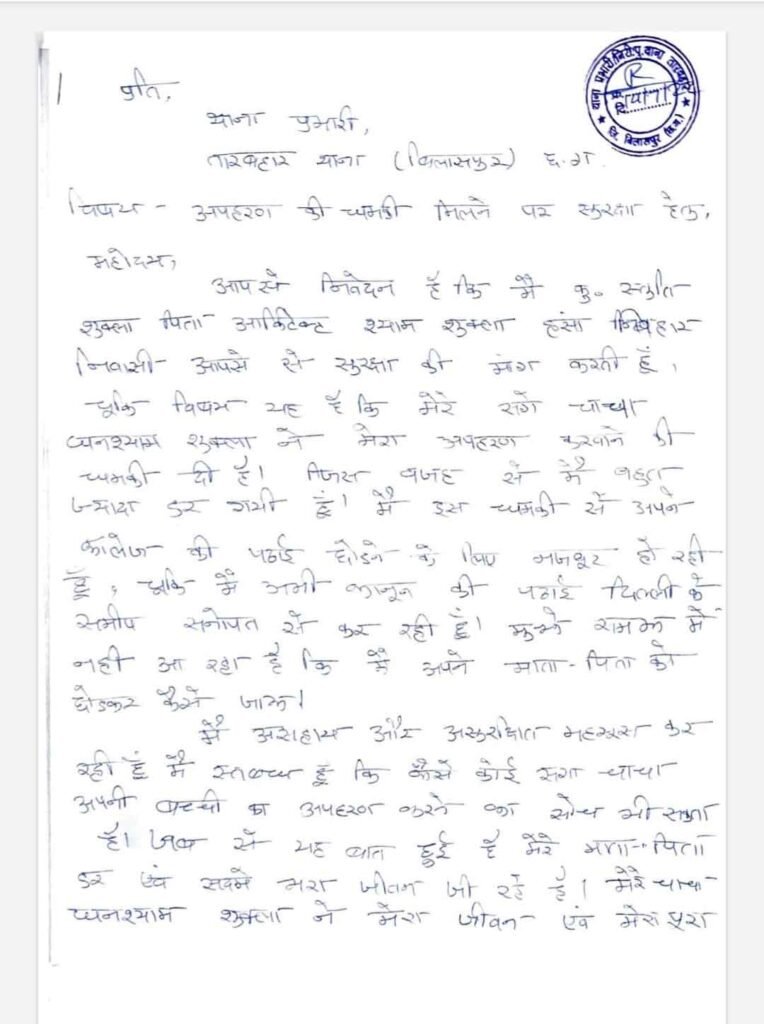 1
प्रति,
थाना प्रभारी,
तारबहार थाना (बिलासपुर) छ.ग.
विषय - अपहरण की धमकी मिलने पर सुरक्षा हेतु,
महोदय,
आप से निवेदन है कि मैं कु.
शुक्ला पिता आर्किटेक्ट श्याम शुक्ला हंसा विहार
निवासी आपसे से सुरक्षा की मांग करती हूँ,
चूकि विषय यह है कि मेरे सगे चाचा
घनश्याम शुक्ला ने मेरा अपहरण करवाने की
धमकी दी है। जिस वजह से मैं बहुत
ज्यादा डर गयी हूं। मैं इस धमकी से अपने
कालेज की पढाई छोडने के लिए मजबूर हो रही
हूँ, चूकि मैं अभी कानून की पढाई दिल्ली के
समीप सनोपत से कर रही हूं। मुझे समझ में
नही आ रहा है कि मैं अपने माता-पिता को
छोडकर कैसे जाऊ।
मैं असहाय और असुरक्षित महसूस कर
रही हूं मैं स्तब्ध हूँ कि कैसे कोई सगा चाचा
अपनी बच्ची का अपहरण करने का सोच भी सकता
है। जब से यह बात हुई है मेरे माता-पिता
डर एवं सदमे भरा जीवन जी रहे है। मेरे चाचा
घनश्याम शुक्ला ने मेरा जीवन एवं मेरा पूरा
थाना प्रभारी
थाना तारबहार
जि. बिलासपुर (छ.ग.)